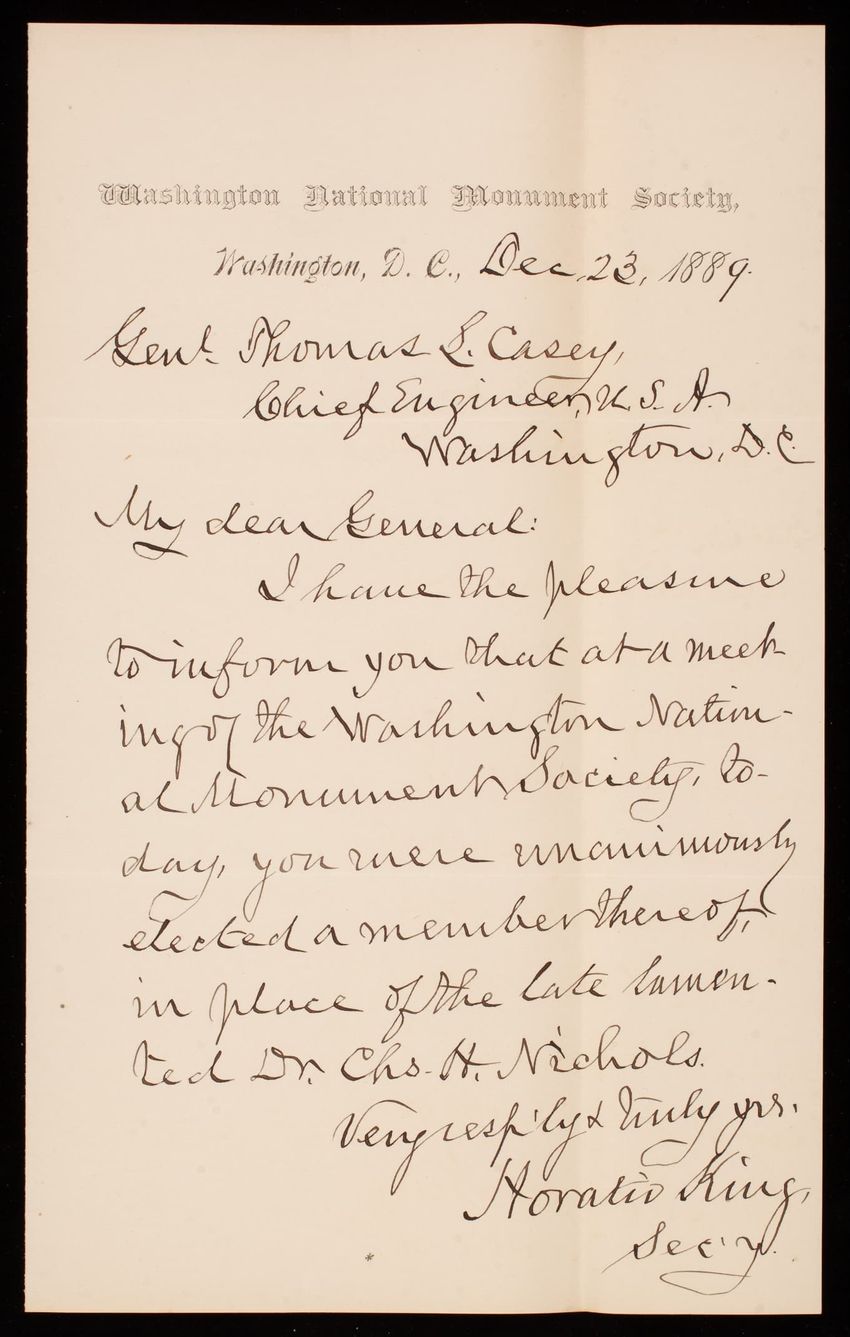 Washington National Monument Society,
Washington, D. C., Dec 23, 1889.
Genl. Thomas L. Casey,
Chief Engineer, U. S. A.
Washington, D. C.
My dear General:
I have the pleasure
to inform you that at a meet-
ing of the Washington Nation-
al Monument Society, to-
day, you were unanimously
elected a member thereof,
in place of the late lamen-
ted Dr. Chs. H. Nichols.
Very respf'ly & truly yrs.
Horatio King,
Sec'y.